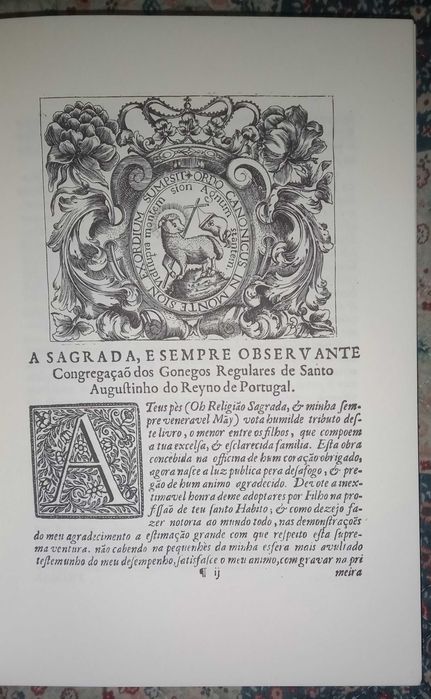 ORDO CANONICUS IN MONTE SION EXORDIUM SUMPSIT
Vidi supra montem sion Agnum stantem
A SAGRADA, E SEMPRE OBSERVANTE
Congregaçaõ dos Gonegos Regulares de Santo
Auguſtinho do Reyno de Portugal.
A Teus pès (Oh Religião Sagrada, & minha ſem-
pre veneravel Mãy) vota humilde tributo deſ-
te livro, o menor entre os filhos, que compoem
a tua excelſa, & eſclarecida familia. Eſta obra
concebida na officina de hum coração obrigado,
agora naſce a luz publica pera deſafogo, & pre-
gão de hum animo agradecido. Devote a inex-
timavel honra deme adoptares por Filho na pro-
fſſaõ de teu ſanto Habito; & como dezejo fa-
zer notoria ao mundo todo, nas demonſtrações
do meu agradecimento a eſtimação grande com que reſpeito eſta ſupre-
ma ventura. não cabendo na pequenhès da minha esfera mais avultado
teſtemunho do meu deſempenho, ſatisfaſce o meu animo, com gravar na pri
¶ ij meira